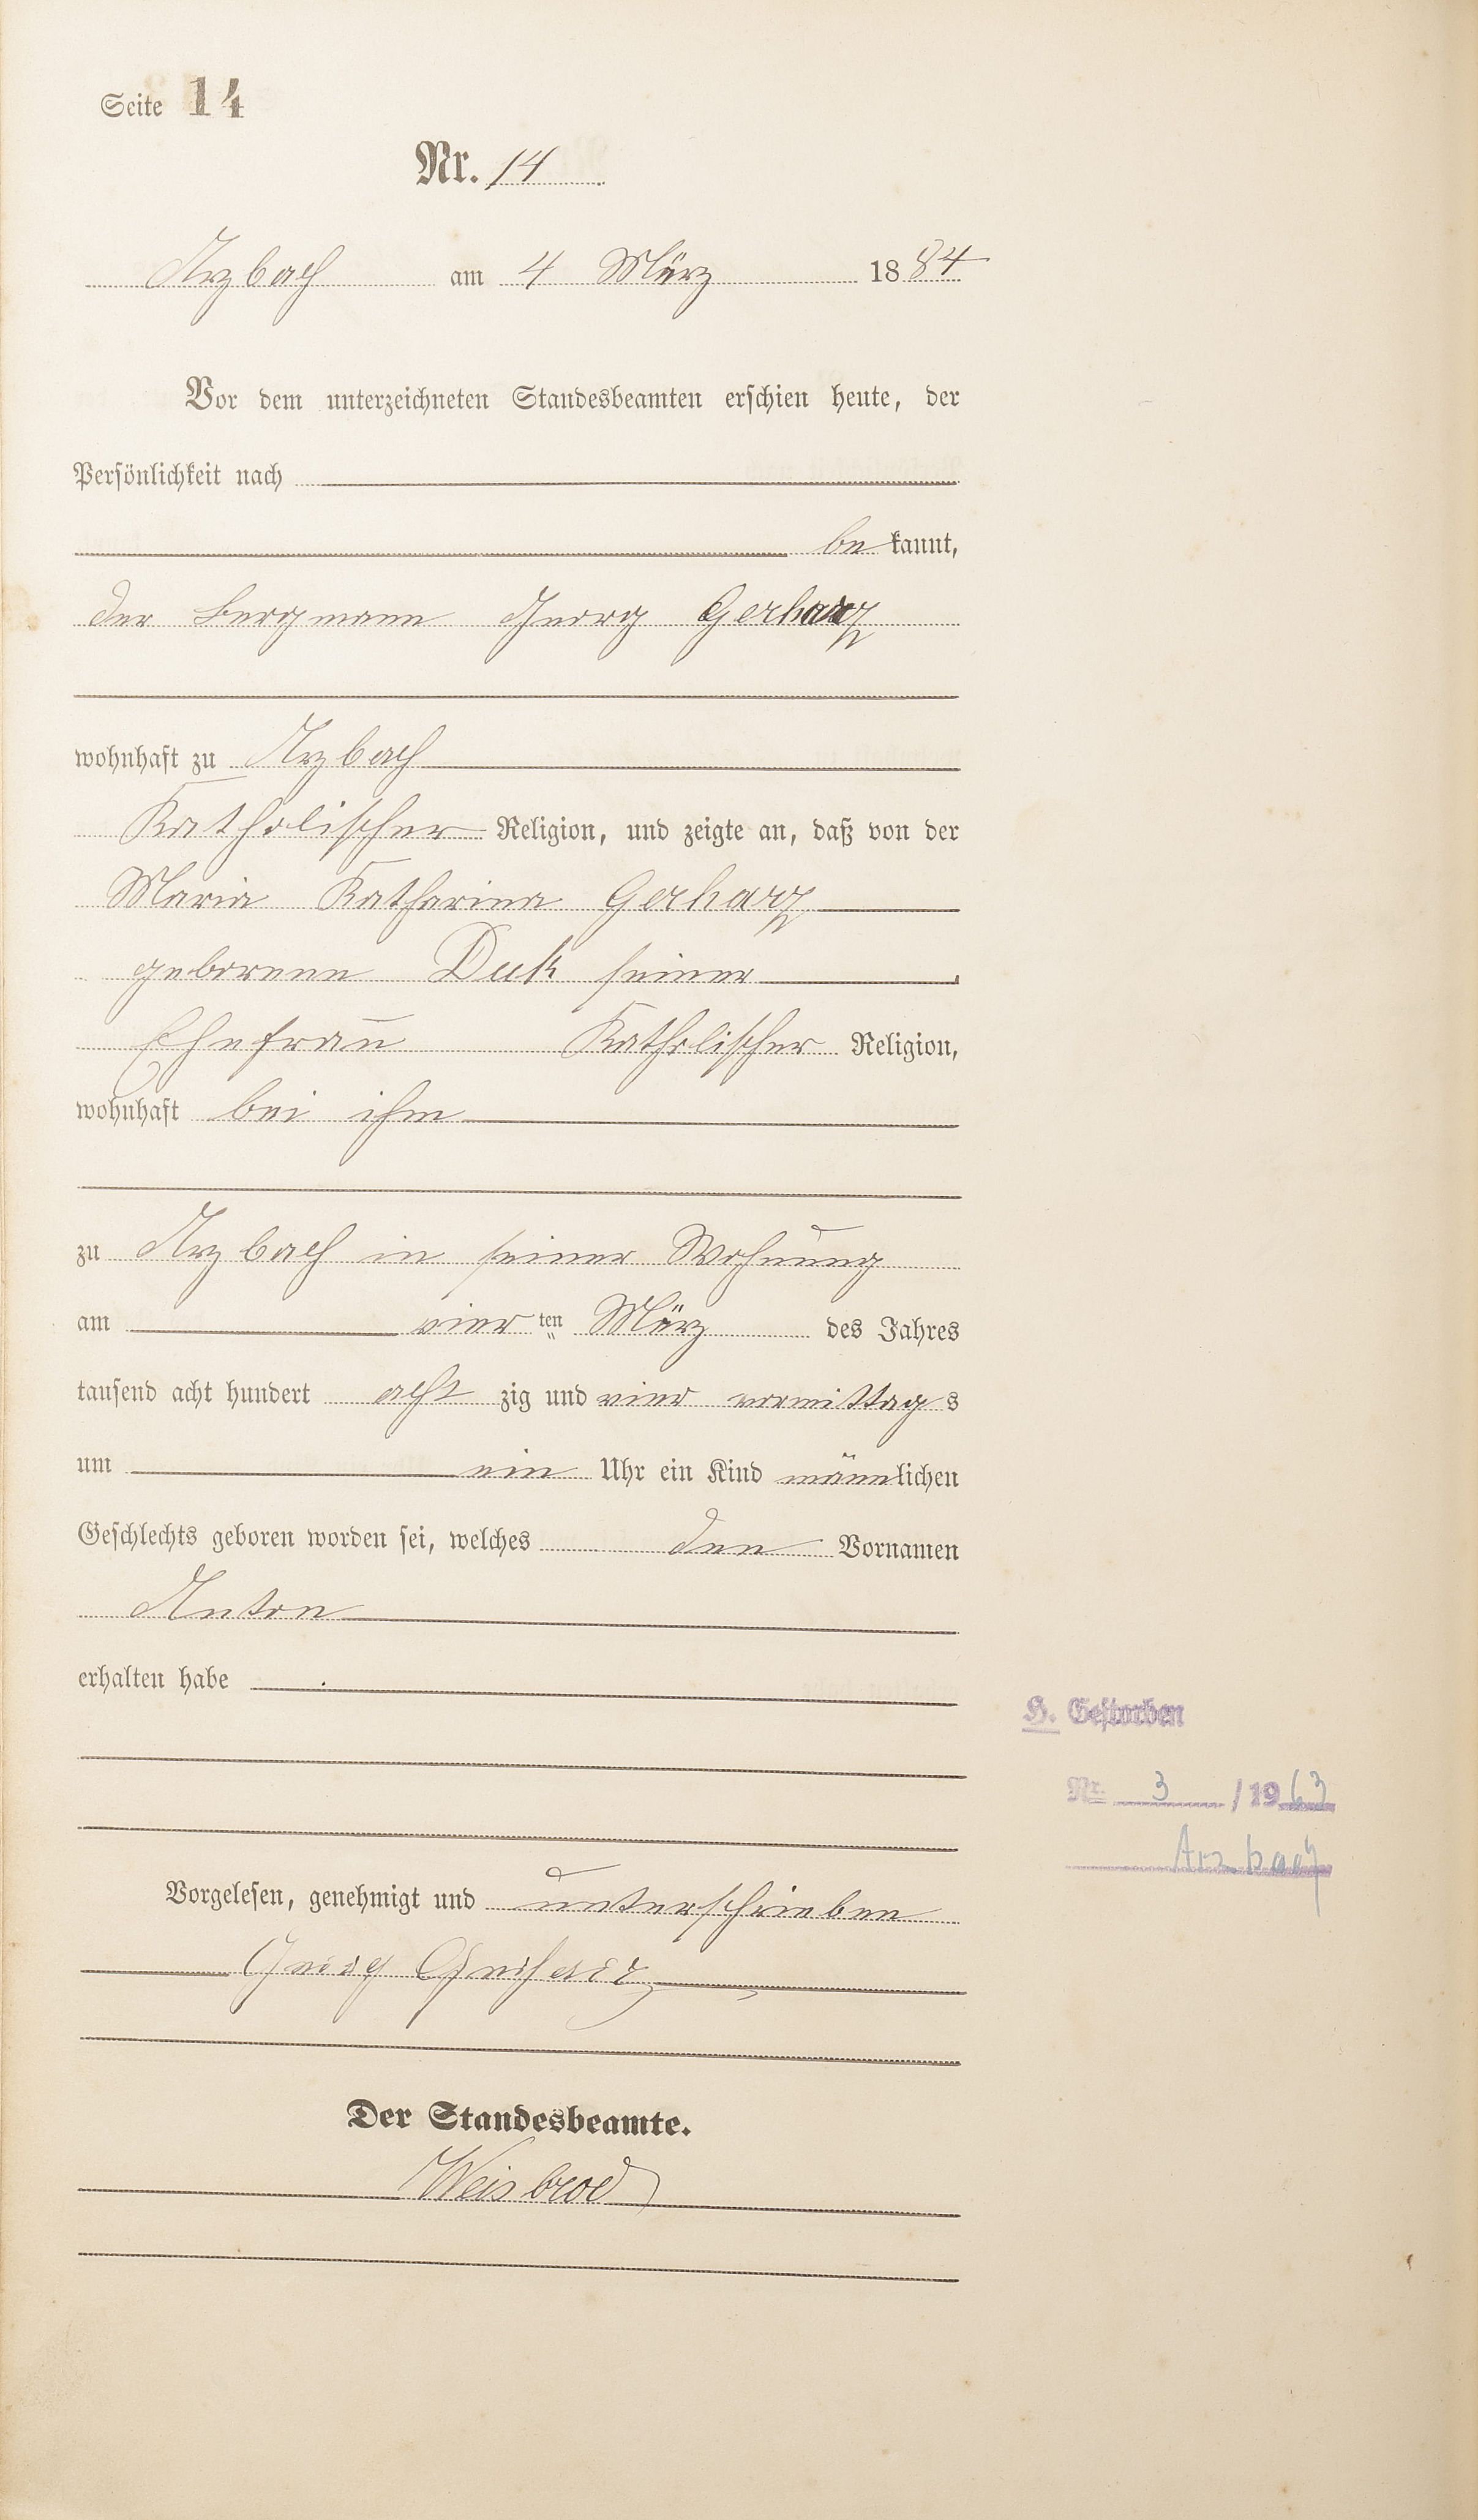 Seite 14
Nr. 14
Arzbach am 4 März 1884
Vor dem unterzeichneten Standesbeamten erschien heute, der
Persönlichkeit nach
be kannt,
der Bergmann Georg Gerharz
wohnhaft zu Arzbach
Katholischer Religion, und zeigte an, daß von der
Maria Katharina Gerharz
geborene Duk seiner
Ehefrau Katholischer Religion,
wohnhaft bei ihm
zu Arzbach in seiner Wohnung
am vier ten März des Jahres
tausend acht hundert acht zig und vier vormittag s
um ein Uhr ein Kind männlichen
Geschlechts geboren worden sei, welches den Vornamen
Anton
erhalten habe
H. Gestorben
Nr. 3 / 1963
Arzbach
Vorgelesen, genehmigt und unterschrieben
Georg Gerharz
Der Standesbeamte.
Weisbrod